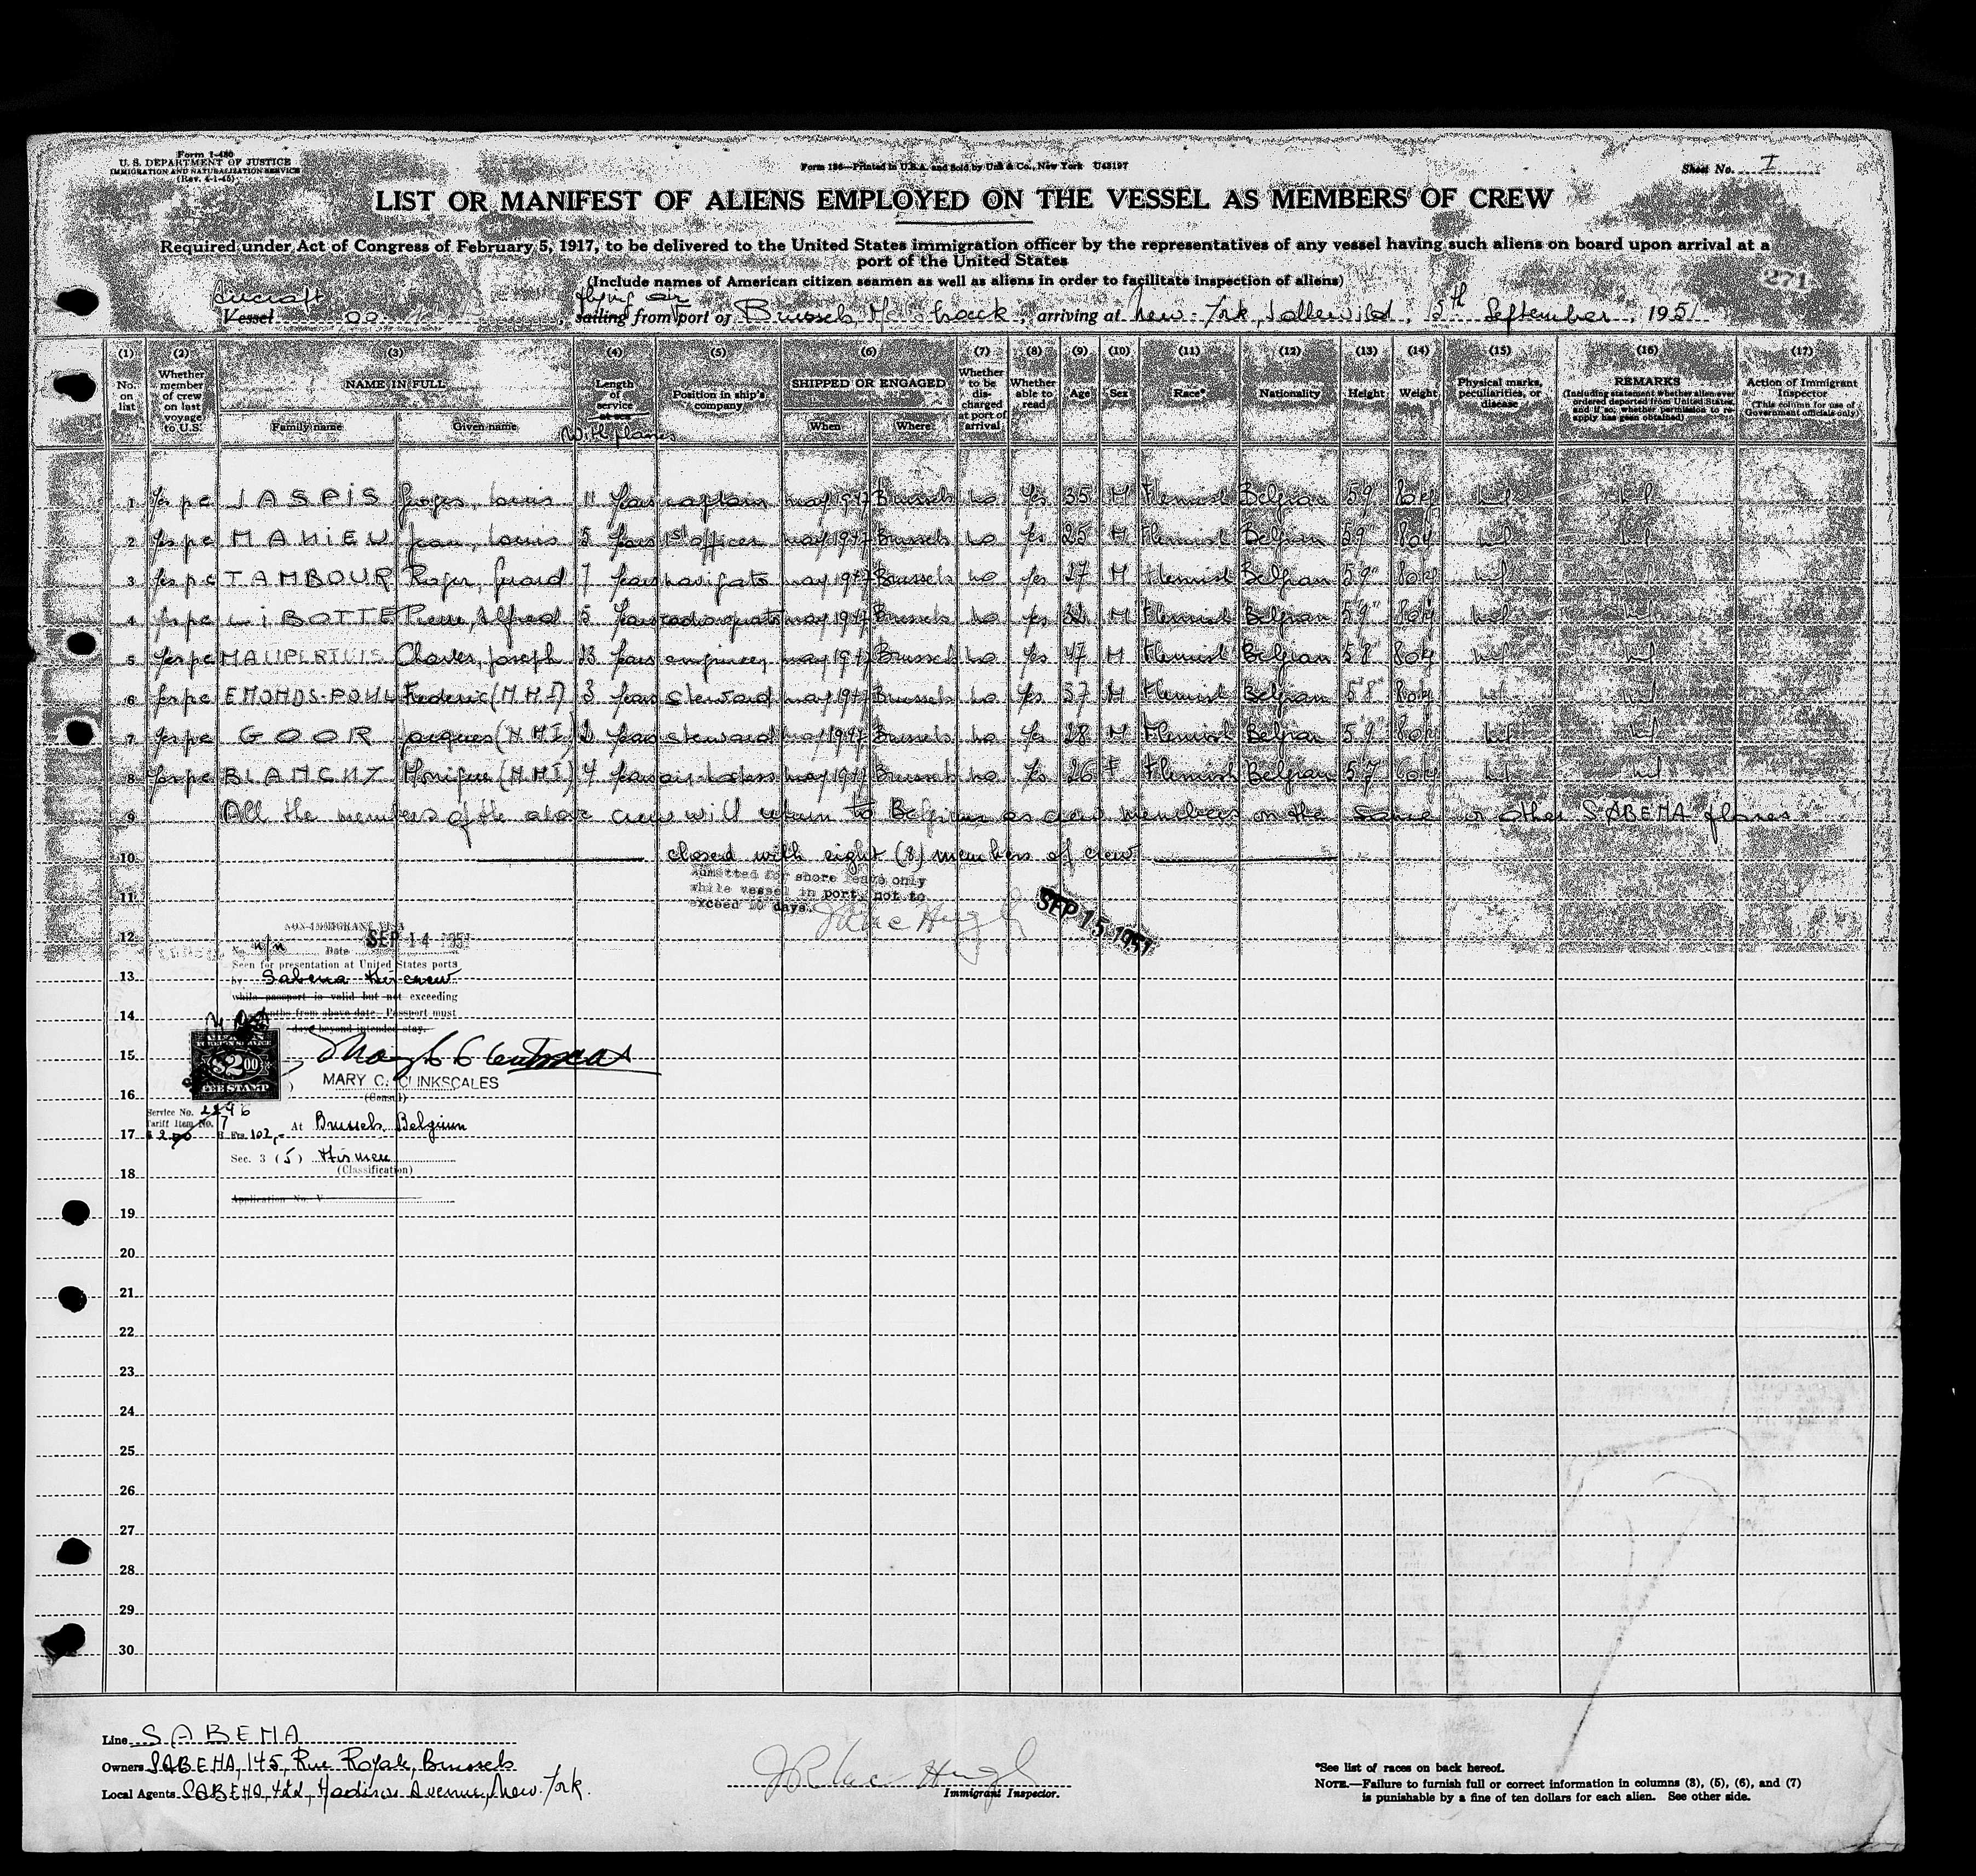 Form I-480
U. S. DEPARTMENT OF JUSTICE
IMMIGRATION AND NATURALIZATION SERVICE
(Rev. 4-1-45)
Form 196—Printed in U.S.A. and Sold by Unz & Co., New York U43197
Sheet No. I
LIST OR MANIFEST OF ALIENS EMPLOYED ON THE VESSEL AS MEMBERS OF CREW
Required under Act of Congress of February 5, 1917, to be delivered to the United States immigration officer by the representatives of any vessel having such aliens on board upon arrival at a
port of the United States
271
(Include names of American citizen seamen as well as aliens in order to facilitate inspection of aliens)
Aircraft flying air
Vessel OO , sailing from port of Brussels, , arriving at New-York, Idlewild, 15th September, 1951
(1) (2) (3) (4) (5) (6) (7) (8) (9) (10) (11) (12) (13) (14) (15) (16) (17)
No. on list
Whether member of crew on last voyage to U.S.
NAME IN FULL
Family name Given name
Length of service at sea
With planes
Position in ship's company
SHIPPED OR ENGAGED
When Where
Whether to be discharged at port of arrival
Whether able to read
Age Sex Race* Nationality Height Weight
Physical marks, peculiarities, or disease
REMARKS
(Including statement whether alien ever ordered deported from United States, and if so, whether permission to reapply has been obtained)
Action of Immigrant Inspector
(This column for use of Government officials only)
1 Yes pc JASPIS Georges, Louis 11 years captain may 1947 Brussels no yes 35 M Flemish Belgian 5 9" 80kg nil nil
2 Yes pc MAHIEU Jean, Louis 5 years 1st officer may 1947 Brussels no yes 25 M Flemish Belgian 5 9 80kg nil nil
3 Yes pc TAMBOUR Roger, Gerard 7 years navigator may 1947 Brussels no yes 27 M Flemish Belgian 5 9" 80kg nil nil
4 Yes pc LIBOTTE Pierre, Alfred 5 years radiooperator may 1947 Brussels no yes M Flemish Belgian 5 9" 80kg nil nil
5 Yes pc MAUPERTUIS Charles, Joseph 23 years engineer may 1947 Brussels no yes 47 M Flemish Belgian 5 8" 80kg nil nil
6 Yes pc EMONDS-POHL Frederic (N.M.I) 3 years steward may 1947 Brussels no yes 37 M Flemish Belgian 5 8" 80kg nil nil
7 Yes pc GOOR Jacques (N.M.I.) 2 years steward may 1947 Brussels no yes 28 M Flemish Belgian 5 9" 80kg nil nil
8 Yes pc BLANCKZ Monique (N.M.I) 4 years air-hostess may 1947 Brussels no yes 26 F Flemish Belgian 5 7 60kg nil nil
9 All the members of the above crew will return to Belgium as crew members on the same or other SABENA planes
10 closed with eight (8) members of crew
Admitted for shore leave only
while vessel in port, not to
11 exceed 10 days.
SEP 15 1951
NON-IMMIGRANT VISA
12 No. Date SEP 14 1951
Seen for presentation at United States ports
13 by Sabena Aircrew
while passport is valid but not exceeding
14 months from above date. Passport must
days beyond intended stay.
15 $2.00
FEE STAMP
MARY C. CLINKSCALES
16 (Consul)
Service No. 2246
Tariff Item No. 7
At Brussels, Belgium
17 $2.00 B. Frs. 102,-
Sec. 3 (5) Airmen
18 (Classification)
Application No. V
19
20
21
22
23
24
25
26
27
28
29
30
Line SABENA
Owners SABENA, 145, Rue Royale, Brussels
Local Agents SABENA, Ltd, Madison Avenue, New-York.
Immigrant Inspector.
*See list of races on back hereof.
NOTE.—Failure to furnish full or correct information in columns (3), (5), (6), and (7)
is punishable by a fine of ten dollars for each alien. See other side.